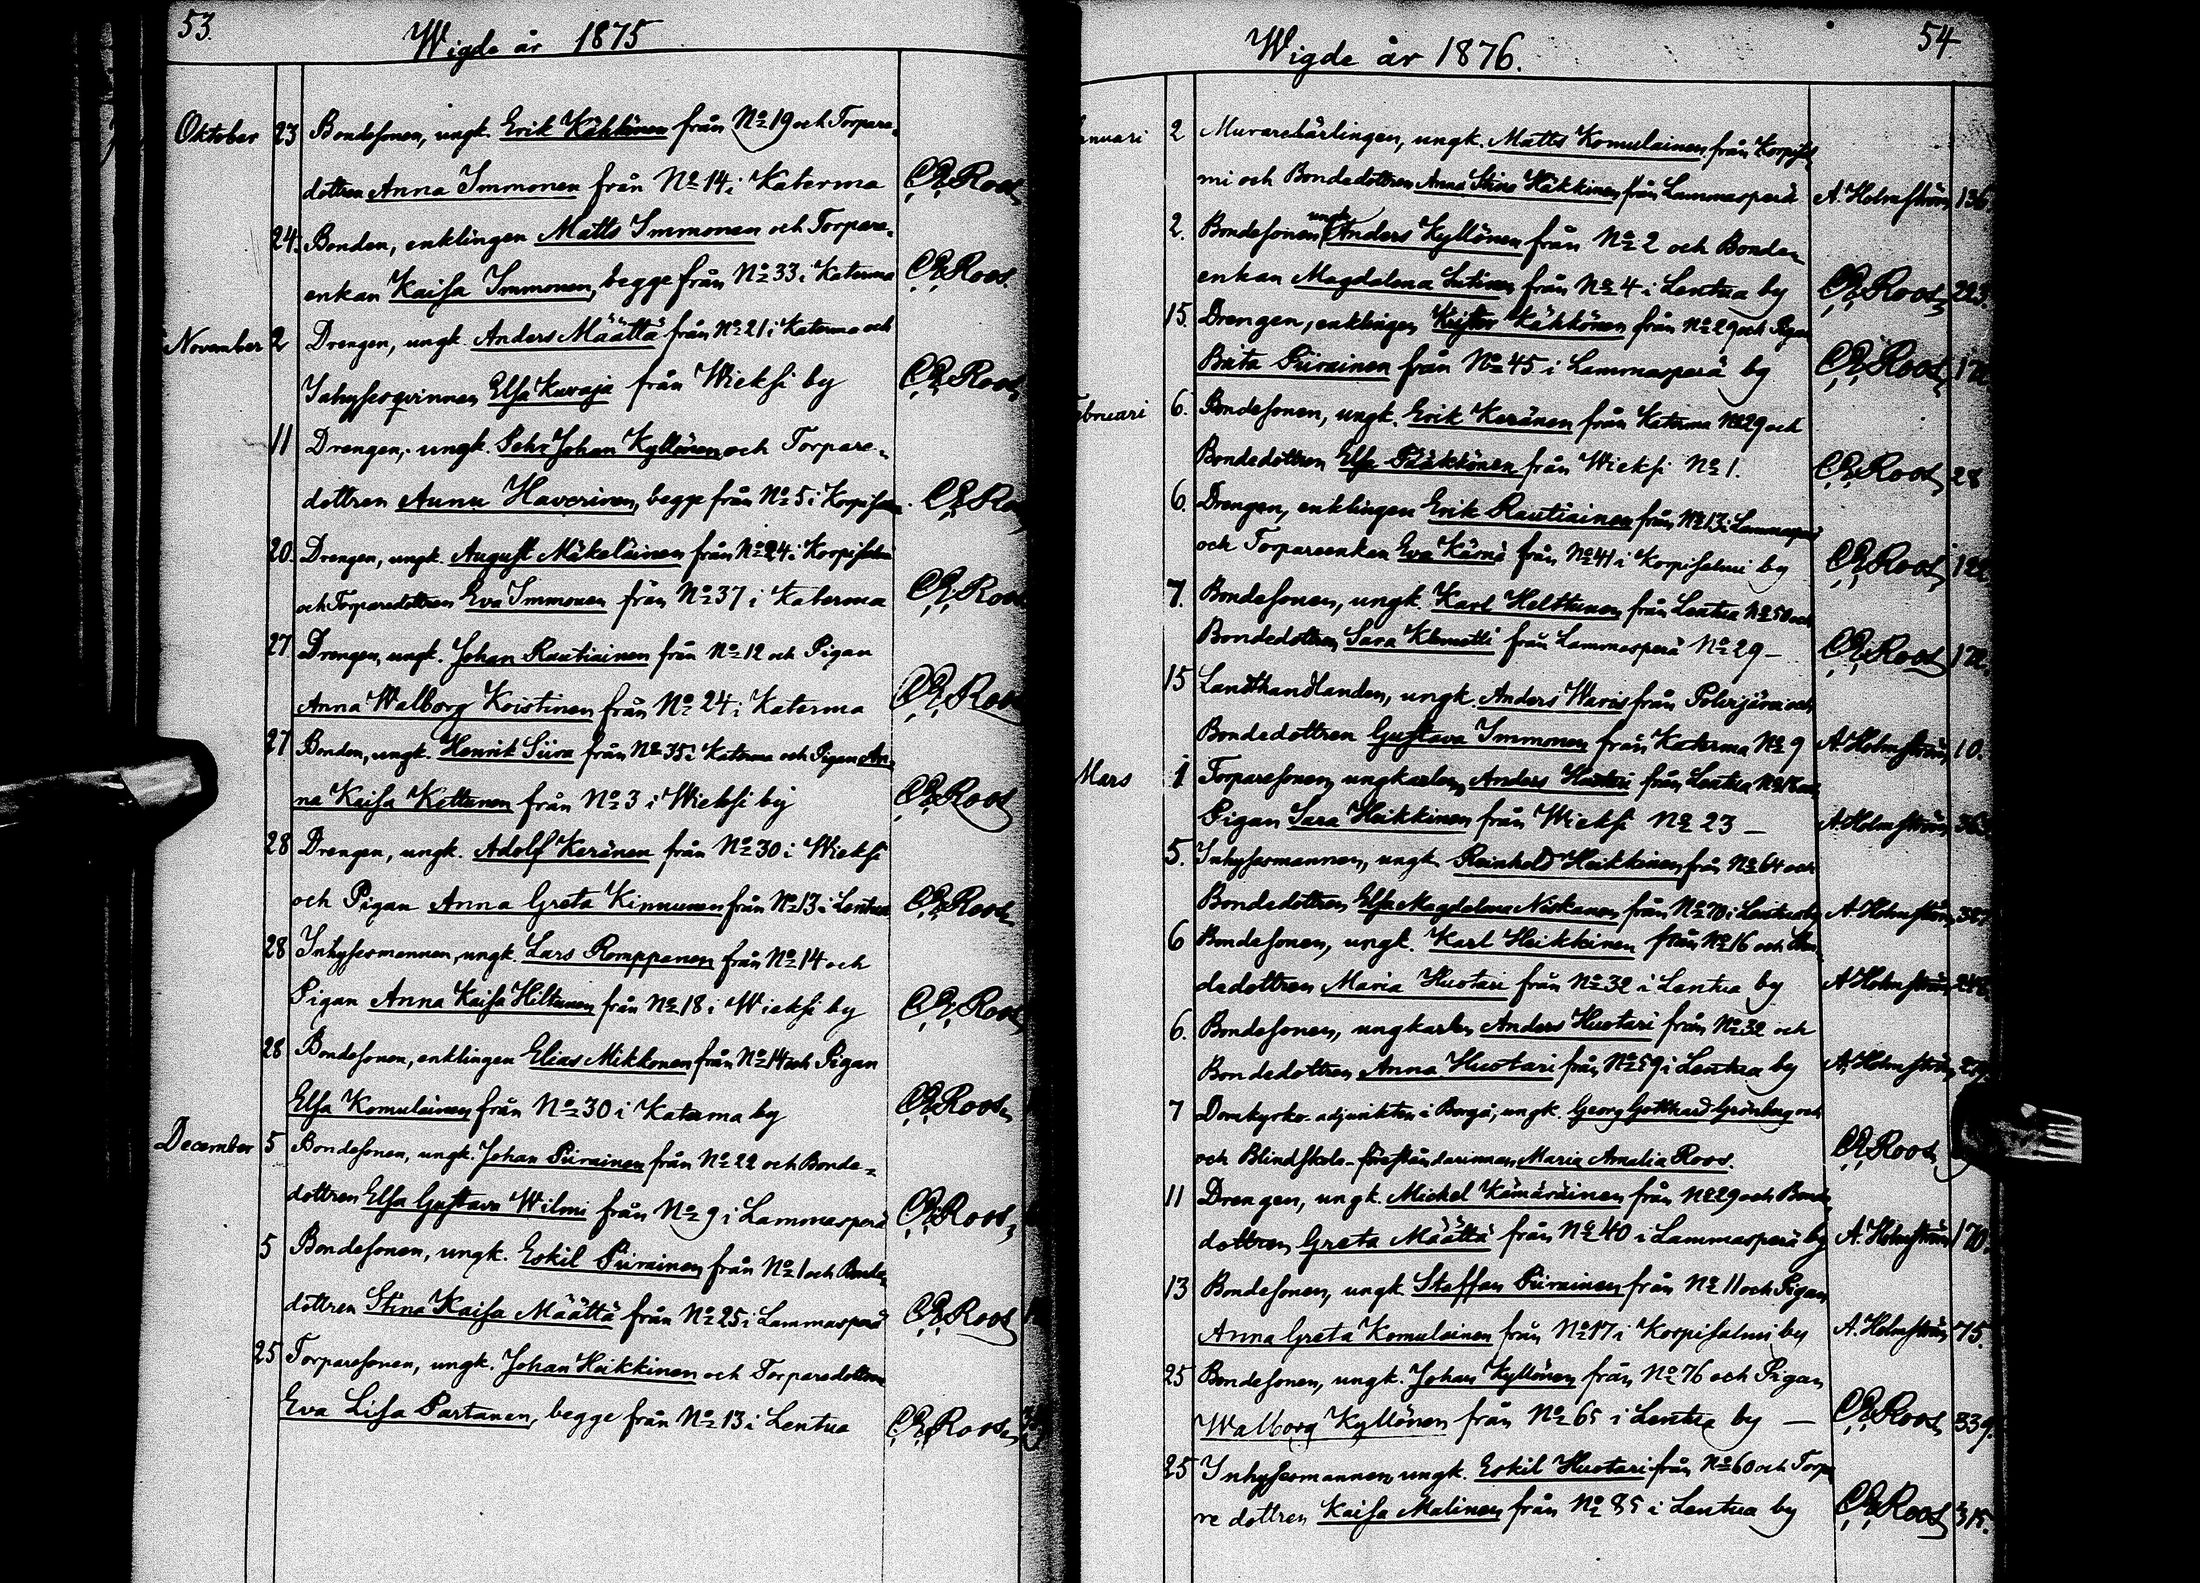 53.
Wigde år 1875
Oktober 23 Bondesonen, ungk. Erik Kähkönen från No 19 och Torpare-
dottren Anna Immonen från No 14 i Katerma Roos
24. Bonden, enklingen Matts Immonen och Torpare-
enkan Kaisa Immonen, begge från No 33 i Katerma Roos
November 2 Drengen, ungk. Anders Määttä från No 21 i Katerma och
Inhysesqvinnan Elsa Kuvaja från Wieksi by Roos
11 Drengen, ungk. Pehr Johan Kyllönen och Torpare-
dottren Anna Haverinen, begge från No 5 i Korpisalmi
20. Drengen, ungk. August Mäkeläinen från No 24 i Korpisalmi
och Torparedottren Eva Immonen från No 37 i Katerma Roos
27 Drengen, ungk. Johan Rautiainen från No 12 och Pigan
Anna Walborg Koistinen från No 24 i Katerma Roos
27 Bonden, ungk. Henrik Siira från No 35 i Katerma och Pigan An-
na Kaisa Kettunen från No 3 i Wieksi by Roos
28 Drengen, ungk. Adolf Keränen från No 30 i Wieksi
och Pigan Anna Greta Kinnunen från No 13 i Lentua Roos
28 Inhysesmannen, ungk. Lars Romppanen från No 14 och
Pigan Anna Kaisa Hiltunen från No 18 i Wieksi by Roos
28 Bondesonen, enklingen Elias Mikkonen från No 14 och Pigan
Elsa Komulainen från No 30 i Katerma by Roos
December 5 Bondesonen, ungk. Johan Piirainen från No 22 och Bonde-
dottren Elsa Gustava Wilmi från No 9 i Lammasperä Roos
5 Bondesonen, ungk. Eskil Piirainen från No 1 och Bonde-
dottren Stina Kaisa Määttä från No 25 i Lammasperä Roos
25 Torparesonen, ungk. Johan Heikkinen och Torparedottren
Eva Lisa Partanen, begge från No 13 i Lentua Roos
54.
Wigde år 1876.
anuari 2 Murarelärlingen, ungk. Matts Komulainen från Korpisal
mi och Bondedottren Anna Stina Häkkinen från Lammasperä A. Holmström 136.
2. Bondesonen ungk. Anders Kyllönen från No 2 och Bonde-
enkan Magdalena Lutinen från No 4 i Lentua by Roos 223.
15. Drengen, enklingen Krister Kähkönen från No 29 och Pigan
Brita Piirainen från No 45 i Lammasperä by Roos
ebruari 6. Bondesonen, ungk. Erik Keränen från Katerma No 29 och
Bondedottren Elsa Pääkkönen från Wieksi No 1. Roos 28
6. Drengen, enklingen Erik Rautiainen från No 13 i Lammasperä
och Torpareenkan Eva Kärnä från No 41 i Korpisalmi by Roos 122.
7. Bondesonen, ungk. Karl Helttunen från Lentua No 50 och
Bondedottren Sara Klemetti från Lammasperä No 29 – Roos
15 Landthandlanden, ungk. Anders Waris från Polvijärvi och
Bondedottren Gustava Immonen från Katerma No 9 A. Holmström 10.
Mars 1 Torparesonen, ungkarlen, Anders Huotari från Lentua
Pigan Sara Heikkinen från Wieksi No 23 – A. Holmström
5. Inhysesmannen, ungk. Reinhold Heikkinen från No 64 och
Bondedottren Elsa Magdalena Niskanen från No 70 i Lentua by A. Holmström
6 Bondesonen, ungk. Karl Heikkinen från No 16 och Bon-
dedottren Maria Huotari från No 32 i Lentua by A. Holmström
6. Bondesonen, ungkarlen Anders Huotari från No 32 och
Bondedottren Anna Huotari från No 59 i Lentua by A. Holmström
7 Domkyrko-adjunkten i Borgå, ungk. Georg Gotthard Grönberg och
och Blindskole-föreståndarinnan Maria Amalia Roos. Roos
11 Drengen, ungk. Mickel Kämäräinen från No 29 och Bonde-
dottren Greta Määttä från No 40 i Lammasperä by A. Holmström 170.
13 Bondesonen, ungk. Staffan Piirainen från No 11 och Pigan
Anna Greta Komulainen från No 17 i Korpisalmi by A. Holmström 75.
25 Bondesonen, ungk. Johan Kyllönen från No 76 och Pigan
Walborg Kyllönen från No 65 i Lentua by – Roos 339.
25 Inhysesmannen, ungk. Eskil Huotari från No 60 och Torpa
re dottren Kaisa Malinen från No 85 i Lentua by Roos 315.